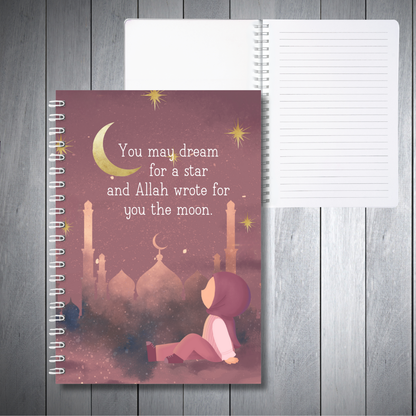 You may dream
for a star
and Allah wrote for
you the moon.